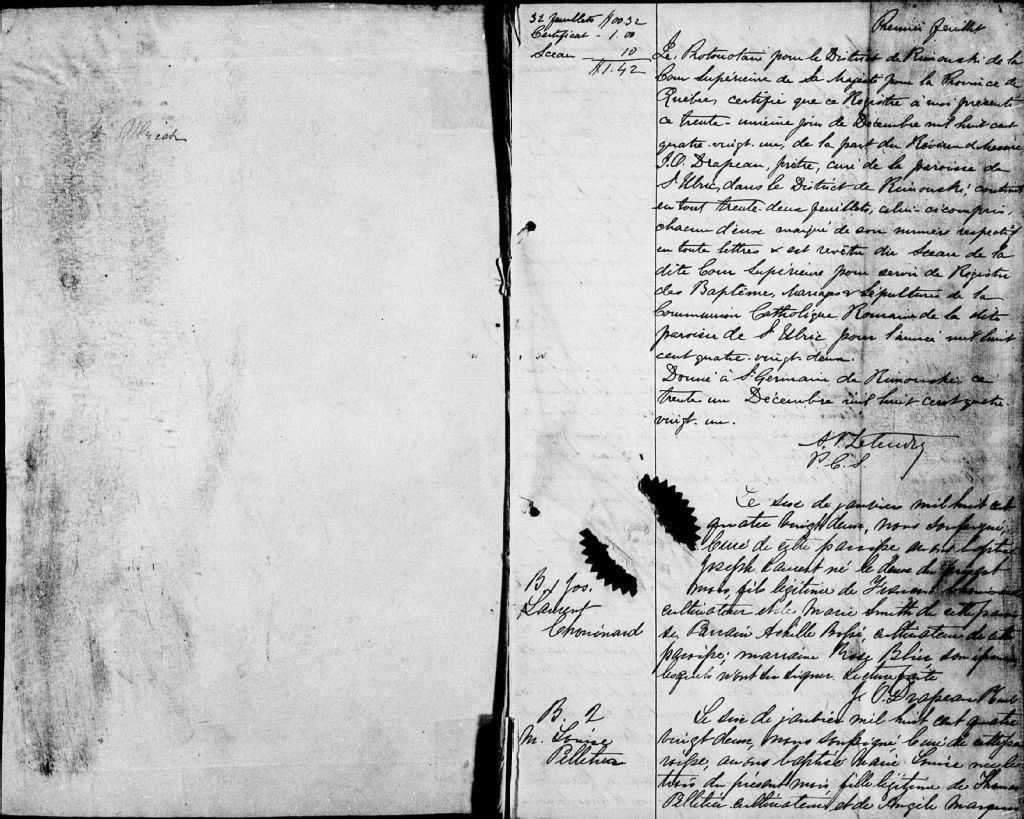 St Ulrich
32 feuillets $00.32
Certificat - 1.00
Sceau 10
$1.42
Premier feuillet
Le Protonotaire pour le District de Rimouski de la
Cour Supérieure de Sa Majesté pour la Province de
Québec, certifie que ce Registre à moi présenté
ce trente-unième jour de Décembre mil huit cent
quatre-vingt-un, de la part du Révérend Messire
J.O. Drapeau, prêtre, curé de la paroisse de
St Ulric, dans le District de Rimouski, contient
en tout trente-deux feuillets, celui-ci compris,
chacun d'eux marqué de son numéro respectif
en toute lettres & est revêtu du Sceau de la
dite Cour Supérieure pour servir de Registre
des Baptême, Mariages & Sépulture de la
Communion Catholique Romaine de la dite
paroisse de St Ulric pour l'année mil huit
cent quatre-vingt-deux.
Donné à St Germain de Rimouski ce
trente un Décembre mil huit cent quatre-
vingt-un.
P.C.S.
B 1 Jos.
Laurent
Chouinard
Le six de janvier mil huit cent
quatre vingt deux, nous soussigné
Curé de cette paroisse avons baptisé
Joseph Laurent né le deux du présent
mois, fils légitime de Chouinard
cultivateur et de Marie Smith de cette parois
se, Parrain Achille Bossé, cultivateur de cette
paroisse; marraine Rose Blier son épouse
lesquels n'ont su signer. Lecture faite
J. O. Drapeau Ptre
B. 2
M. Louise
Pelletier
Le six de janvier mil huit cent quatre
vingt deux, nous soussigné Curé de cette pa
roisse, avons baptisé Marie Louise née le
trois du présent mois, fille légitime de Thomas
Pelletier cultivateur et de Angèle Marquis